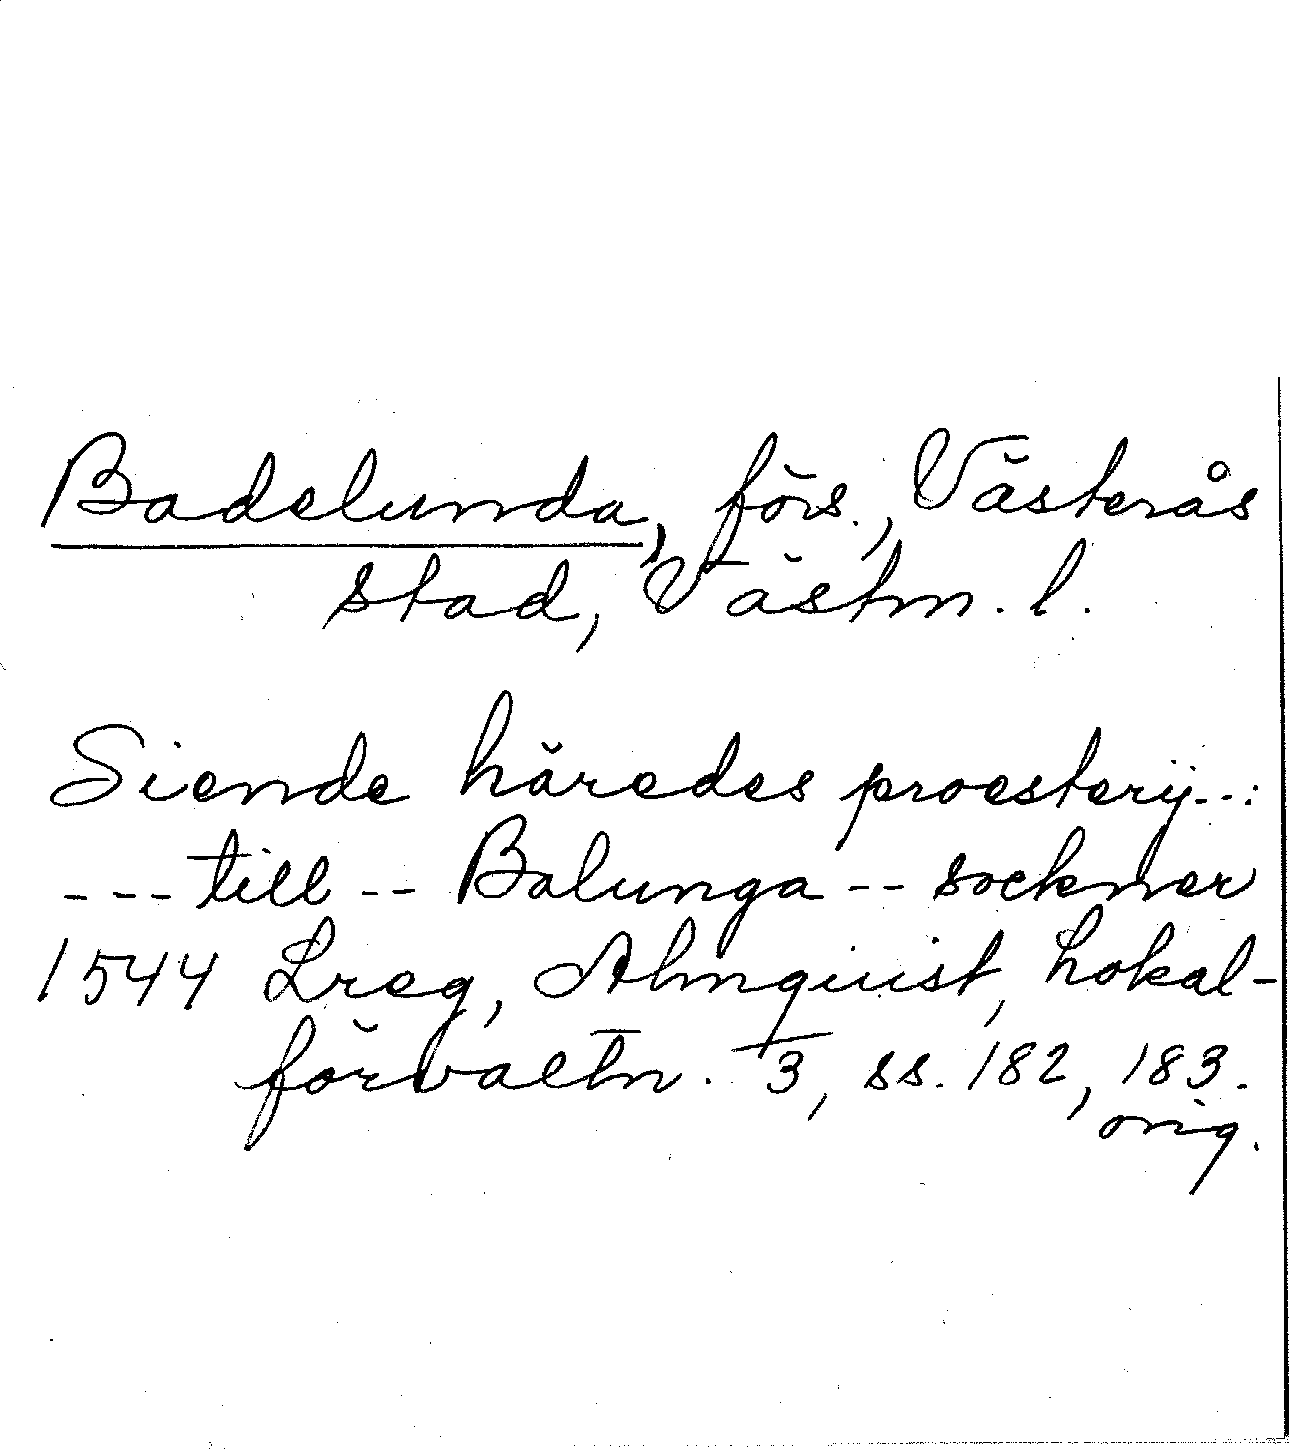 Badelunda, förs., Västerås
stad, Västm. l.
Siende häredes proesterij--:
---till -- Balunga -- socknar
1544 Lreg, Almquist, Lokal-
förvaltn. 3, ss. 182, 183.
orig.